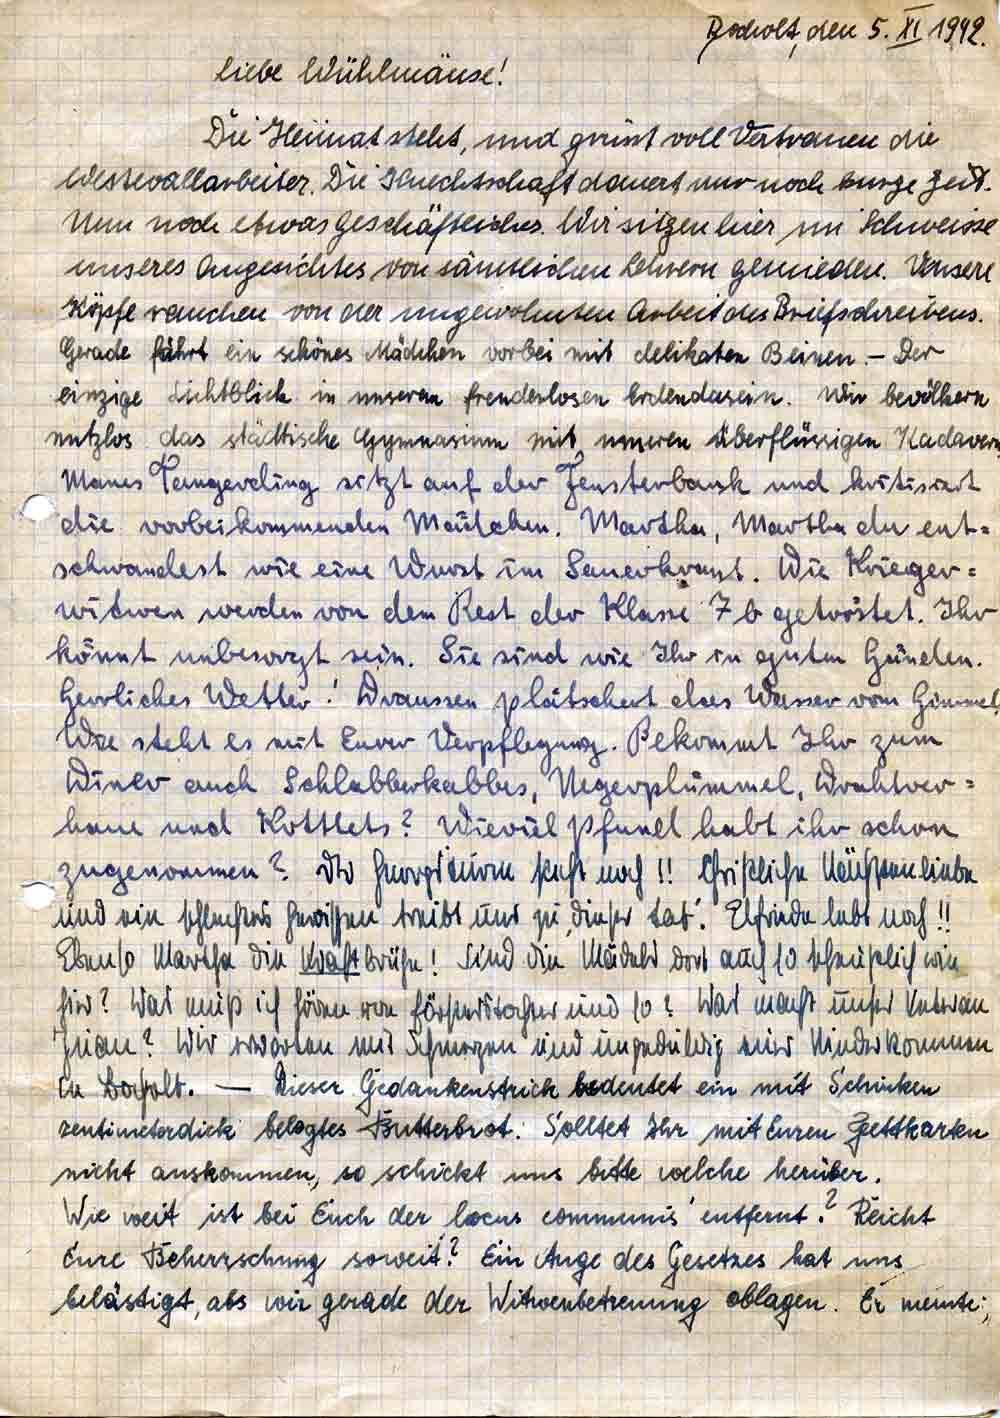 Bocholt, den 5. XI 1942.
Liebe Wühlmäuse!
Die Heimat steht, und grüsst voll Vertrauen die
Westwallarbeiter. Die Knechtschaft dauert nur noch kurze Zeit.
Nun noch etwas Geschäftliches. Wir sitzen hier im Schweisse
unseres Angesichtes von sämtlichen Lehrern gemieden. Unsere
Köpfe rauchen von der ungewohnten Arbeit des Briefschreibens.
Gerade fährt ein schönes Mädchen vorbei mit delikaten Beinen. – Der
einzige Lichtblick in unserem freudenlosen Erdendasein. Wir bevölkern
nutzlos das städtische Gymnasium mit unseren überflüssigen Kadavern
Manes sitzt auf der Fensterbank und kritisiert
die vorbeikommenden Mädchen. Martha, Martha du ent=
schwandest wie eine Wurst im Sauerkraut. Die Krieger=
witwen werden von dem Rest der Klasse 7b getröstet. Ihr
könnt unbesorgt sein. Sie sind wie Ihr in guten Händen.
Herrliches Wetter! Draussen plätschert das Wasser vom Himmel.
Wie steht es mit Eurer Verpflegung. Bekommt Ihr zum
Diner auch Schlabberkabbes, Negerplümmel, Drahtver=
haue und Kottlets? Wieviel Pfund habt ihr schon
zugenommen? Der steht noch!! Christliche Nächstenliebe
und ein schlechtes Gewissen treibt uns zu dieser Tat. Elfriede lebt noch!!
Ebenso Martha die Kraftbrühe! Sind die Mädels dort auch so scheußlich wie
hier? Was muß ich hören von Försterstochter und so? Was macht unser Veteran
? Wir erwarten mit Schmerzen und ungeduldig euer Wiederkommen
in Bocholt. — Dieser Gedankenstrich bedeutet ein mit Schinken
zentimeterdick belegtes Butterbrot. Solltet Ihr mit Euren Fettkarten
nicht auskommen, so schickt uns bitte welche herüber.
Wie weit ist bei Euch der 'locus communis' entfernt? Reicht
Eure Beherrschung soweit? Ein Auge des Gesetzes hat uns
belästigt, als wir gerade der Witwenbetreuung oblagen. Er meinte:,,